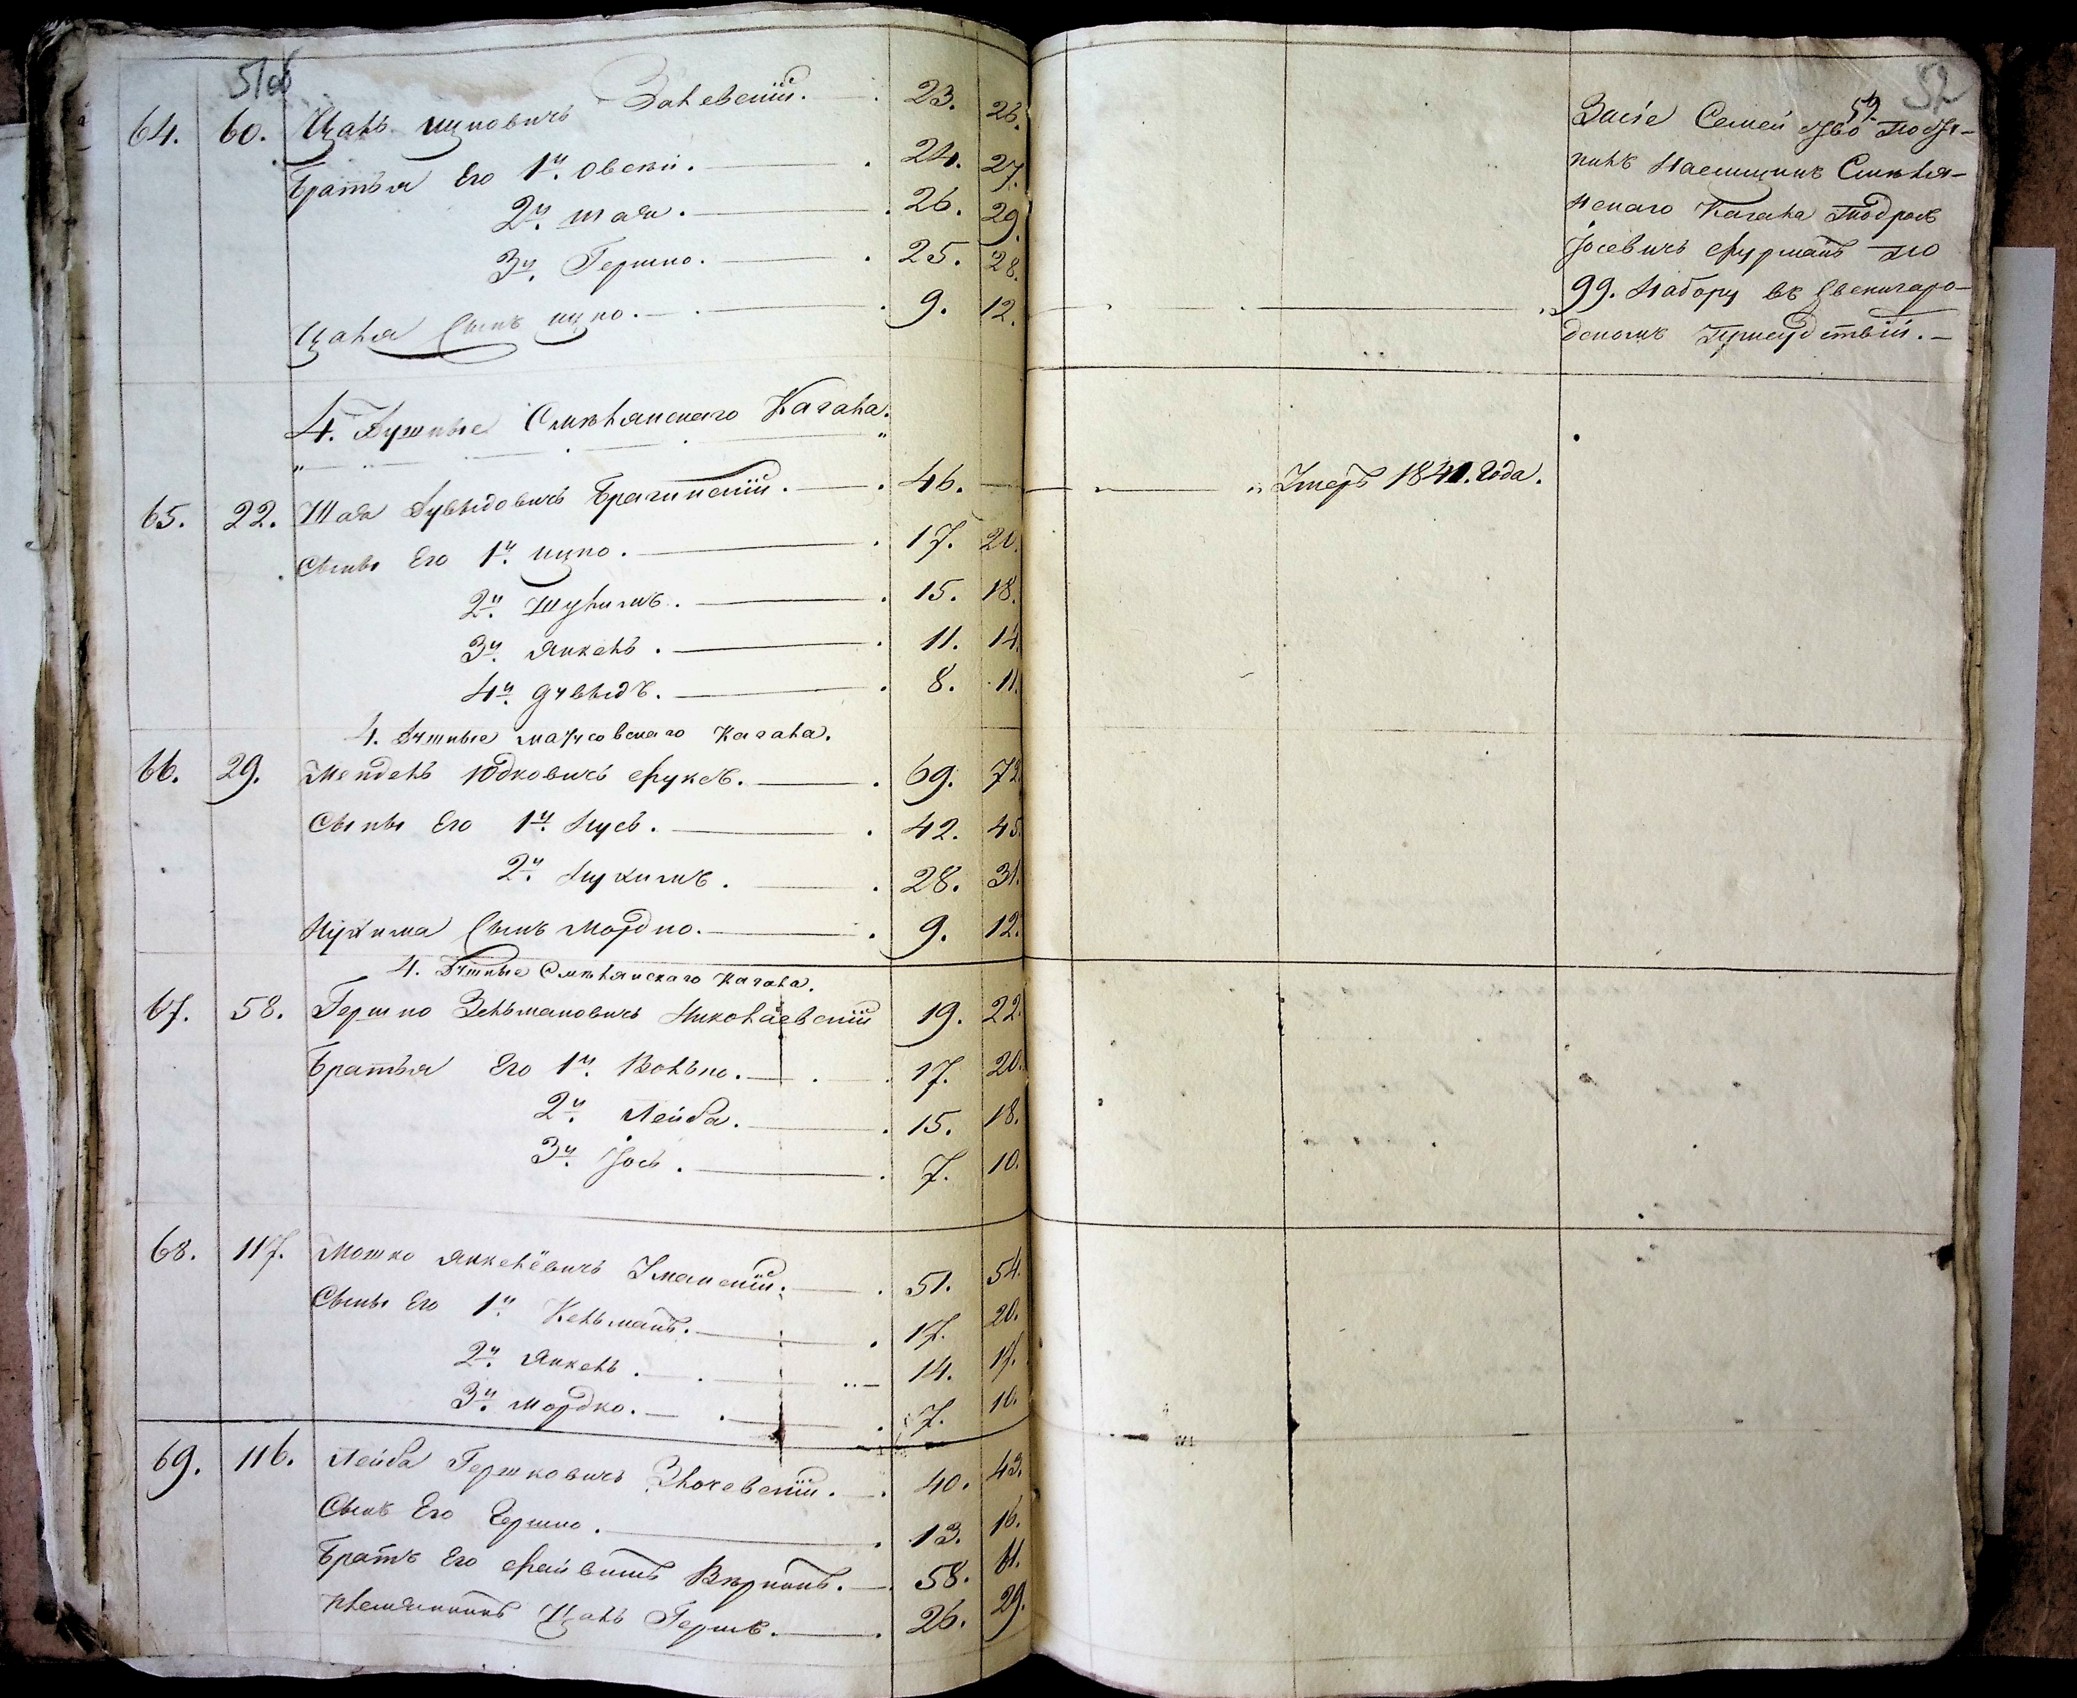 51об
64. 60. Цаль Ицковичь Залевский. 23. 26.
Братья Его 1й Овсей. 24. 27.
2й Шая. 26. 29.
3й Гершко. 25. 28.
Цаля Сынъ Ицко. 9. 12.
4. Душные Смѣлянскаго Кагала.
65. 22. Шая Дувыдовичъ Брагинский. 46. —
Сыны Его 1й Ицко. 17. 20.
2й Шулимъ. 15. 18.
3й Янкель. 11. 14.
4й Дувыдъ. 8. 11.
4. Душные Кагала.
66. 29. Мендель Юдковичъ Фуксъ. 69. 72.
Сыны Его 1й Нусъ. 42. 45.
2й Нухимъ. 28. 31.
Нухима Сынъ Мордко. 9. 12.
4. Душные Смѣлянскаго Кагала.
67. 58. Гершко Зельмановичъ Николаевский 19. 22.
Братья Его 1й Волько. 17. 20.
2й Лейба. 15. 18.
3й Іось. 7. 10.
68. 117. Мошко Янкелёвичъ Уманский. 51. 54.
Сыны Его 1й Кельманъ. 17. 20.
2й Янкель. 14. 17.
3й Мордко. 7. 10.
69. 116. Лейба Гершковичъ Злочевский. 40. 43.
Сынъ Его Гершко. 13. 16.
Братъ Его Файвишъ 58. 61.
племянникъ Цаль Гершк. 26. 29.
52
59
Засіе Семейство Поступ-
никъ Наемщикъ Смѣля-
нскаго Кагала Тодрость
Іосевичъ Фурманъ по
99. Набору въ Звенигаро-
дскомъ Присудствій.
Умеръ 1841. Года.